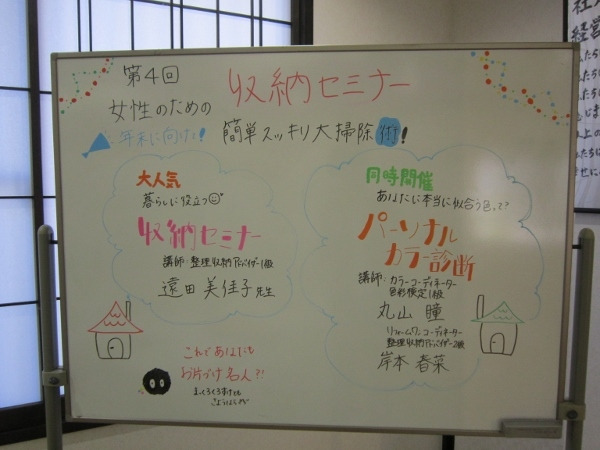 第4回
収納セミナー
女性のための
年末に向けて!
簡単スッキリ大掃除術!
大人気
暮らしに役立つ
収納セミナー
講師:整理収納アドバイザー1級
遠田 美佳子先生
同時開催
あなたに本当に似合う色って?
パーソナル
カラー診断
講師:カラーコーディネーター
色彩検定1級
丸山 瞳
リフォームワンコーディネーター
整理収納アドバイザー2級
岸本 春菜
これであなたも
お片づけ名人?!
まっくろくろすけも
さようなら
社
経営